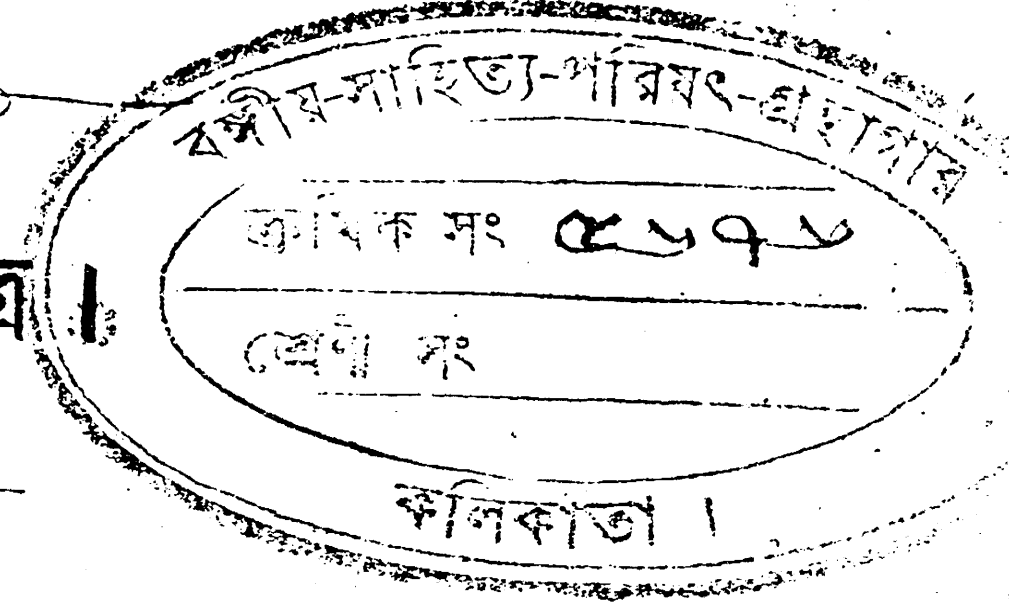 বঙ্গীয়-সাহিত্য-পরিষৎ-গ্রন্থাগার
ক্রমিক সং ৫৬৭৬
শ্রেণী সং
কলিকাতা ।